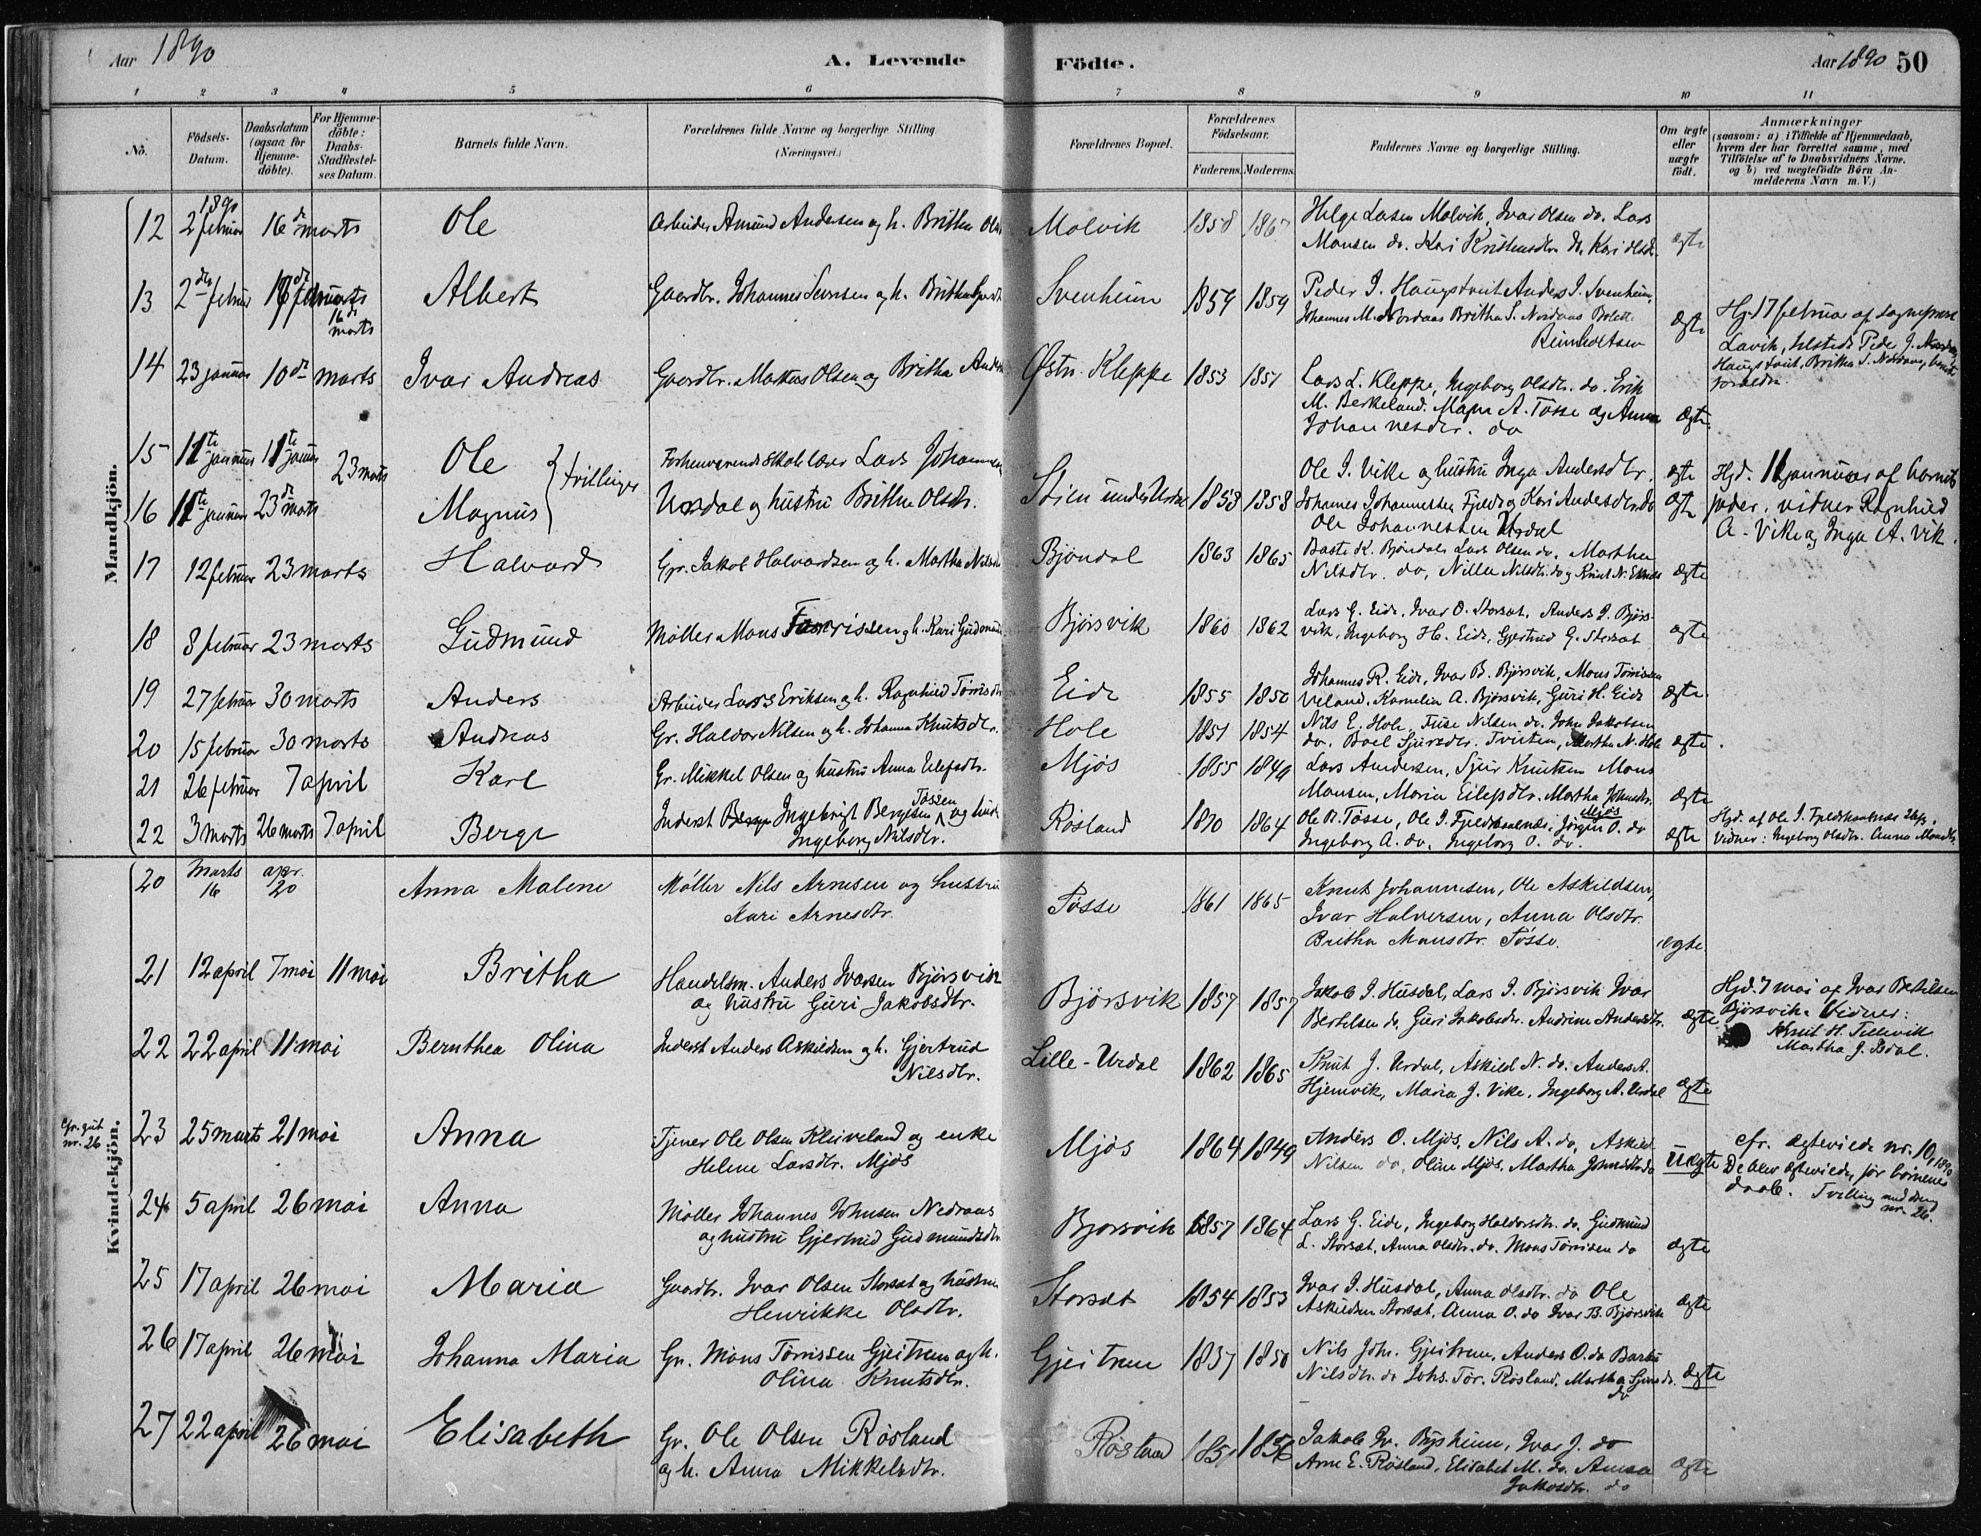 Aar 1890
A. Levende
Födte.
Aar 1890 50
1 2 3 4 5 6 7 8 9 10 11
Nö.
Födsels-Datum.
Daabsdatum (ogsaa for Hjemme-döbte).
For Hjemme-döbte: Daabs-Stadfæstel-ses Datum.
Barnets fulde Navn.
Forældrenes fulde Navne og borgerlige Stilling
(Næringsvei.)
Forældrenes Bopæl.
Forældrenes Födselsaar.
Faderens. Moderens.
Faddernes Navne og borgerlige Stilling.
Om ægte eller uægte födt.
Anmærkninger
(saasom: a) i Tilfælde af Hjemmedaab, hvem der har forrettet samme, med Tilföielse af to Daabsvidners Navne. og b) ved uægtefödte Börn An-melderens Navn m. V.)
Mandkjön.
12 1890 2 februar 16de marts Ole Arbeider Amund Andersen og h. Britha Molvik 1858 1867 Helge Larsen Molvik, Ivar Olsen do. Lars
Monsen do. Kari do. Kari ægte
13 2den februar 16de marts Albert Gaardbr. Johannes og h. Britha Svenheim 1859 1859 Peder J. Anders J. Svenheim,
Johannes M. Nordaas Britha S. Nordaas ægte
Hj. 17 februar af
14 23 januar 10de marts Ivar Andreas Gaardbr. Markus Olsen og Britha Østr. Kleppe 1853 1851 Lars L. Kleppe, Ingeborg Olsdtr. do. Erik
M. Berkeland. A. Tösse og Anna
Johannesdtr. do ægte
15 11te januar 11te januar 23 marts Ole Forhenværende skolelærer Lars
tvillinger
16 11te januar 23de marts Magnus Urdal og hustru Britha Olsdtr. 1853 1858
Ole J. Vike og hustru Inga Andersdtr. ægte
Johannes Johannessen Kari Andersdtr. do ægte
Ole Johannessen Urdal
Hjd. 11 januar af barnets
fader. vidner Ragnhild
A. Vike og Inga A. Vik.
17 12 februar 23 marts Halvard Gr. Jakob Halvardsen og h. Martha Bjöndal 1863 1865 K. Bjöndal Lars Olsen do. Martha
Nilsdtr. do, Nilla Nilsdtr. do og Knut N. ægte
18 8 februar 23 marts Gudmund Møller Mons og h. Kari Bjørsvik 1860 1862 Lars G. Eide, Ivar O. Storsæt. Anders Bjørs-
vik, Ingeborg H. Eide, Gjertrud G. Storsæt ægte
19 27 februar 30 marts Anders Arbeider Lars Eriksen og h. Ragnhild Eide 1855 1850 Johannes R. Eide, Ivar B. Bjørsvik, Mons Tørrissen
Veland, Kornelia A. Bjørsvik, Guri H. Eide ægte
20 15 februar 30 marts Andreas Gr. Haldor Nilsen og h. Johanna Knutsdtr. Hole 1851 1854 Nils E. Hole, Nilsen do. John Jakobsen
do. Sjursdtr. Martha N. Hole ægte
21 26 februar 7 april Karl Gr. Mikkel Olsen og hustru Anna Eilefsdtr. Mjös 1855 1849 Lars Andersen, Sjur Knutsen Mons
Monsen, Maria Eilefsdtr. Martha Johnsdtr. ægte
22 3 marts 26 marts 7 april Berge Inderst Ingebrigt Bergesen Tössen og hustr
Ingeborg Nilsdtr. Røsland 1870 1864 Ole O. Tösse, Ole J. Jörgen O. do
Ingeborg A. do, Ingeborg O. do. ægte
Hjd. af Ole J.
Vidner: Ingeborg Olsdtr. Anna
Kvindekjön.
20 marts 16 apr. 20 Anna Malene Møller Nils Arnesen og hustru
Kari Arnesdtr. Tösse 1861 1865 Knut Johannesen, Ole Askildsen,
Ivar Halversen, Anna Olsdtr.
Britha Monsdtr. Tösse. ægte
21 12 april 7 mai 11 mai Britha Handelsm. Anders Ivarsen Bjørsvik
og hustru Guri Jakobsdtr. Bjørsvik 1857 1857 Jakob I. Husdal, Lars I. Bjørsvik Ivar
Bertelsen do, Guri Jakobsdtr. Andrine Andersdtr. ægte
Hjd. 7 mai af Ivar Bertelsen
Bjørsvik. Vidner:
Knut H.
Martha J.
22 22 april 11 mai Bernthea Olina Inderst Anders Askildsen og h. Gjertrud
Nilsdtr. Lille-Urdal 1862 1865 Knut J. Urdal, Askild N. do. Anders A.
Hjemvik, Maria J. Vike, Ingeborg A. Urdal ægte
Cfr. gut
nr. 26
23 25 marts 21 mai Anna Tjener Ole Olsen Kleiveland og enke
Helene Larsdtr. Mjös Mjös 1864 1849 Anders O. Mjös, Nils A. do, Askild
Nilsen do, Oline Mjös, Martha do uægte
cfr. ægteviede nr. 10, 1890
De blev ægteviede før börnenes
daab. Tvilling med dreng
nr. 26.
24 5 april 26 mai Anna Møller Johannes Johnsen Nedraas
og hustru Gjertrud Gudmundsdtr Bjorsvik 1857 1864 Lars G. Eide, Ingeborg Haldorsdtr. do. Gudmund
L. Storsæt, Anna Olsdtr. do. Mons Tørrisen do ægte
25 17 april 26 mai Maria Gaardbr. Ivar Olsen Storsæt og hustru
Henrikke Olsdtr. Storsæt 1854 1853 Ivar I. Husdal, Anna Olsdtr. do Ole
Askildsen Storsæt, Anna O. do Ivar B. Bjørsvik ægte
26 17 april 26 mai Johanna Maria Gr. Mons Tørrissen Gjeitrem og h.
Olina Knutsdtr. Gjeitrem 1857 1850 Nils Joh. Gjeitrem, Anders O. do
Nilsdtr. do Johs. Tør. Røsland, Martha
do ægte
27 22 april 26 mai Elisabeth Gr. Ole Olsen Røsland
og h. Anna Mikkelsdtr. Røsland 1851 1856 Jakob Iv. Ivar J. do
Arne E. Røsland, Elisabet M. do. Anna
Jakobsdtr. do ægte